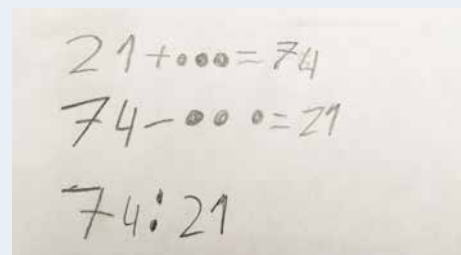 21+•••=74
74-•••=21
74:21